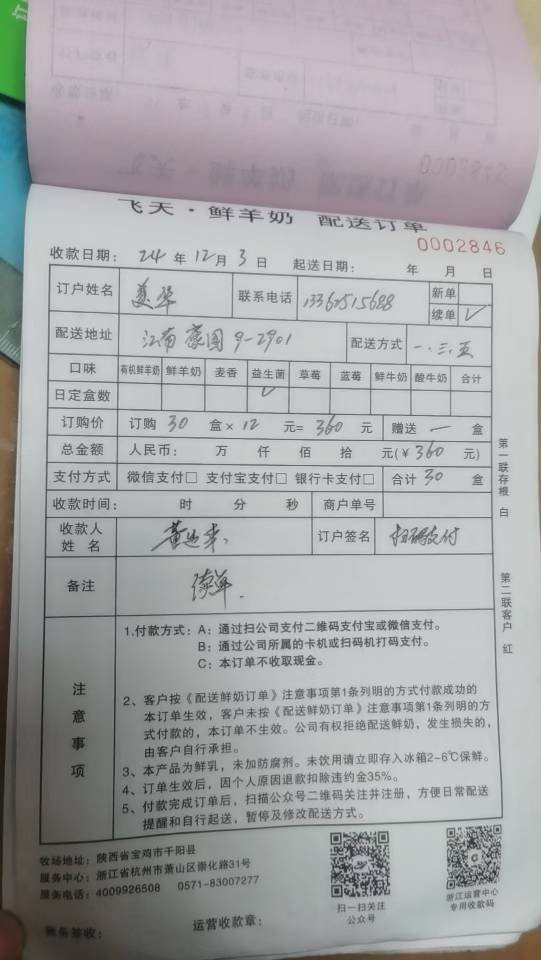 0002846
飞天·鲜羊奶 配送订单
0002846
收款日期: 24 年 12 月 3 日 起送日期: 年 月 日
订户姓名 联系电话 新单
续单 ✓
配送地址 江南豪园 9-2901 配送方式 一.三.五
口味 有机鲜羊奶 鲜羊奶 麦香 益生菌 草莓 蓝莓 鲜牛奶 酸牛奶 合计
日定盒数 ✓
订购价 订购 30 盒 × 12 元= 360 元 赠送 一 盒
总金额 人民币: 万 仟 佰 拾 元(¥360 元)
支付方式 微信支付□ 支付宝支付□ 银行卡支付□ 合计 30 盒
收款时间: 时 分 秒 商户单号
收款人
姓 名 订户签名 扫码支付
备注 续单.
注意事项
1.付款方式: A: 通过扫公司支付二维码支付宝或微信支付。
B: 通过公司所属的卡机或扫码机打码支付。
C: 本订单不收取现金。
2、客户按《配送鲜奶订单》注意事项第1条列明的方式付款成功的
本订单生效，客户未按《配送鲜奶订单》注意事项第1条列明的方
式付款的，本订单不生效。公司有权拒绝配送鲜奶，发生损失的，
由客户自行承担。
3、本产品为鲜乳，未加防腐剂。未饮用请立即存入冰箱2-6℃保鲜。
4、订单生效后，因个人原因退款扣除违约金35%。
5、付款完成订单后，扫描公众号二维码关注并注册，方便日常配送
提醒和自行起送，暂停及修改配送方式。
第一联存根 白
第二联客户 红
牧场地址: 陕西省宝鸡市千阳县
服务中心: 浙江省杭州市萧山区崇化路31号
服务电话: 4009926508 0571-83007277
扫一扫关注
公众号
浙江运营中心
专用收款码
账务签收: 运营收款章: